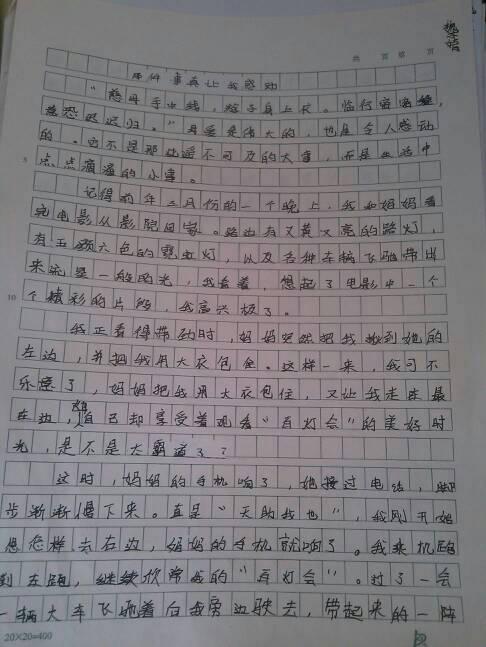 杨婧
共 页 第 页
那件事真让我感动
“慈母手中线,游子身上衣。临行密密缝,
意恐迟迟归。”母爱是伟大的,也是令人感动
的。它不是那些遥不可及的大事,而是生活中
5
点点滴滴的小事。
记得前年三月份的一个晚上,我和妈妈看
完电影从影院回家。路边有又黄又亮的路灯,
有五颜六色的霓虹灯,以及各种车辆飞驰带出
来流星一般的光,我看着,想起了电影中一个
10
个精彩的片段,我高兴极了。
我正看得带劲时,妈妈突然把我揪到她的
左边,并把我用大衣包住。这样一来,我可不
乐意了,妈妈把我用大衣包住,又让我走在最
左边,她自己却享受着观看“百灯会”的美好时
光,是不是太霸道了?
这时,妈妈的手机响了,她接过电话,脚
步渐渐慢下来。真是“天助我也”,我刚开始
想怎样去右边,妈妈的手机就响了。我乘机跑
到右边,继续欣赏我的“百灯会”。过了一会
一辆大车飞驰着自我旁边驶去,带起来的一阵
20×20=400